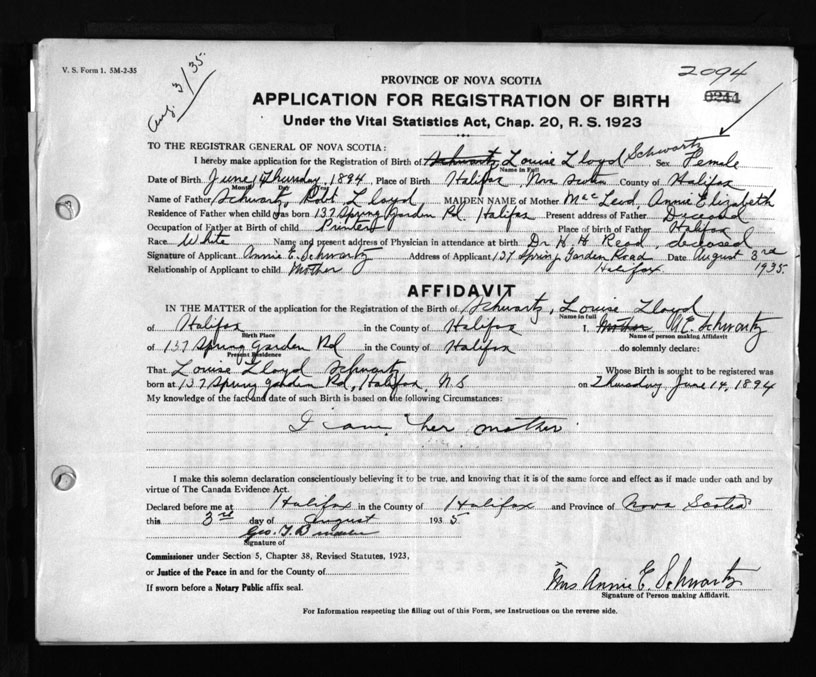 V. S. Form 1. 5M-2-35
Aug. 3/35.
2094
PROVINCE OF NOVA SCOTIA
APPLICATION FOR REGISTRATION OF BIRTH
0244
Under the Vital Statistics Act, Chap. 20, R. S. 1923
TO THE REGISTRAR GENERAL OF NOVA SCOTIA:
I hereby make application for the Registration of Birth of Schwartz, Louise Lloyd Schwartz Sex Female
Name in Full
Date of Birth June, 14 Thursday, 1894 Place of Birth Halifax, Nova Scotia County of Halifax
Month Day Year
Name of Father Schwartz, Robt Lloyd, MAIDEN NAME of Mother MacLeod, Annie Elizabeth
Residence of Father when child was born 137 Spring Garden Rd. Halifax Present address of Father Deceased
Occupation of Father at Birth of child Printer Place of birth of Father Halifax
Race White Name and present address of Physician in attendance at birth Dr H. H. Read, deceased
Signature of Applicant Annie E. Schwartz Address of Applicant 137 Spring Garden Road Date August 3rd
Relationship of Applicant to child Mother Halifax 1935
AFFIDAVIT
IN THE MATTER of the application for the Registration of the Birth of Schwartz, Louise Lloyd
Name in full
of Halifax in the County of Halifax I, Mother A. E. Schwartz
Birth Place Name of person making Affidavit
of 137 Spring Garden Rd in the County of Halifax do solemnly declare:
Present Residence
That Louise Lloyd Schwartz Whose Birth is sought to be registered was
born at 137 Spring Garden Rd, Halifax, N.S on Thursday, June 14, 1894
My knowledge of the fact and date of such Birth is based on the following Circumstances:
I am her mother
I make this solemn declaration conscientiously believing it to be true, and knowing that it is of the same force and effect as if made under oath and by
virtue of The Canada Evidence Act.
Declared before me at Halifax in the County of Halifax and Province of Nova Scotia
this 3rd day of August 1935
Geo. T.
Signature of
Commissioner under Section 5, Chapter 38, Revised Statutes, 1923,
or Justice of the Peace in and for the County of
If sworn before a Notary Public affix seal.
Mrs Annie E. Schwartz
Signature of Person making Affidavit.
For Information respecting the filling out of this Form, see Instructions on the reverse side.